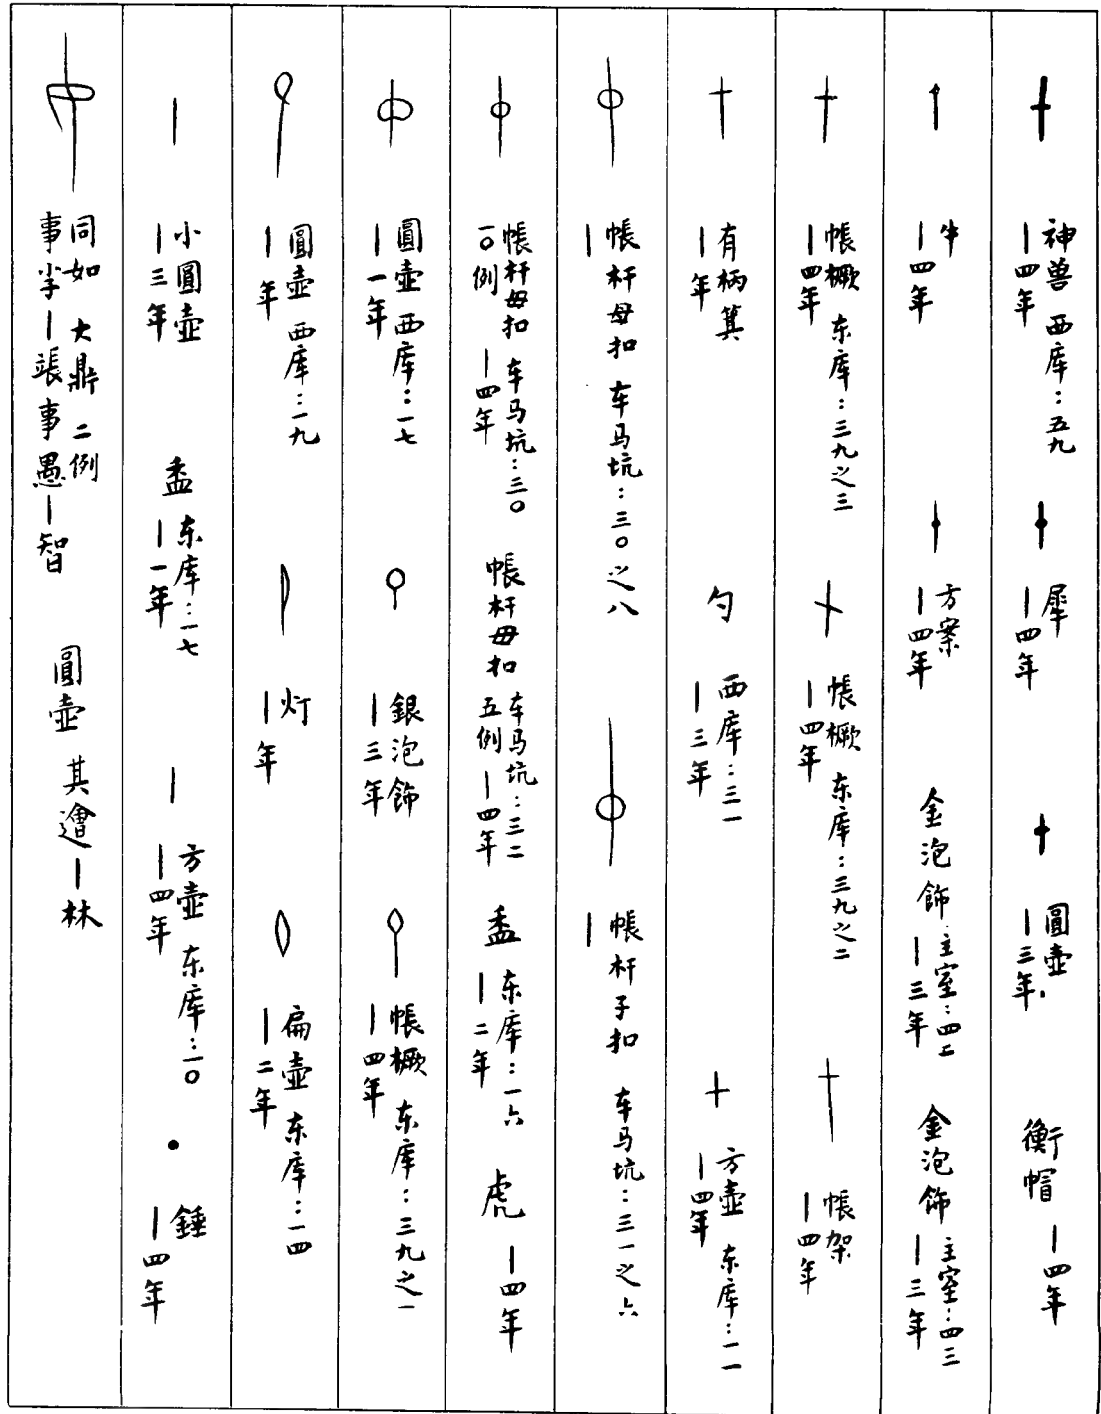 神兽 西库：五九
丨四年
犀
丨四年
圓壺
丨三年
衡帽 丨四年
牛
丨四年
方案
丨四年
金泡飾 主室：四二
丨三年
金泡飾 主室：四三
丨三年
帳橛 东库：三九之三
丨四年
帳橛 东库：三九之二
丨四年
帳架
丨四年
有柄箕
丨年
勺 西库：三一
丨三年
方壺 东库：一一
丨四年
帳杆母扣 车马坑：三〇之八
丨
帳杆子扣 车马坑：三一之六
丨
帳杆母扣 车马坑：三〇
一〇例 丨四年
帳杆毋扣 车马坑：三二
五例 丨四年
盉 东库：一六
丨二年
虎 丨四年
圓壺 西库：一七
丨一年
銀泡飾
丨三年
帳橛 东库：三九之一
丨四年
圓壺 西库：一九
丨年
灯
丨年
扁壺 东库：一四
丨二年
小圓壺
丨三年
盉 东库：一七
丨一年
丨 方壺 东库：一〇
丨四年
錘
丨四年
同如 大鼎 二例
事 丨 事愚丨智
圓壺 其 丨林